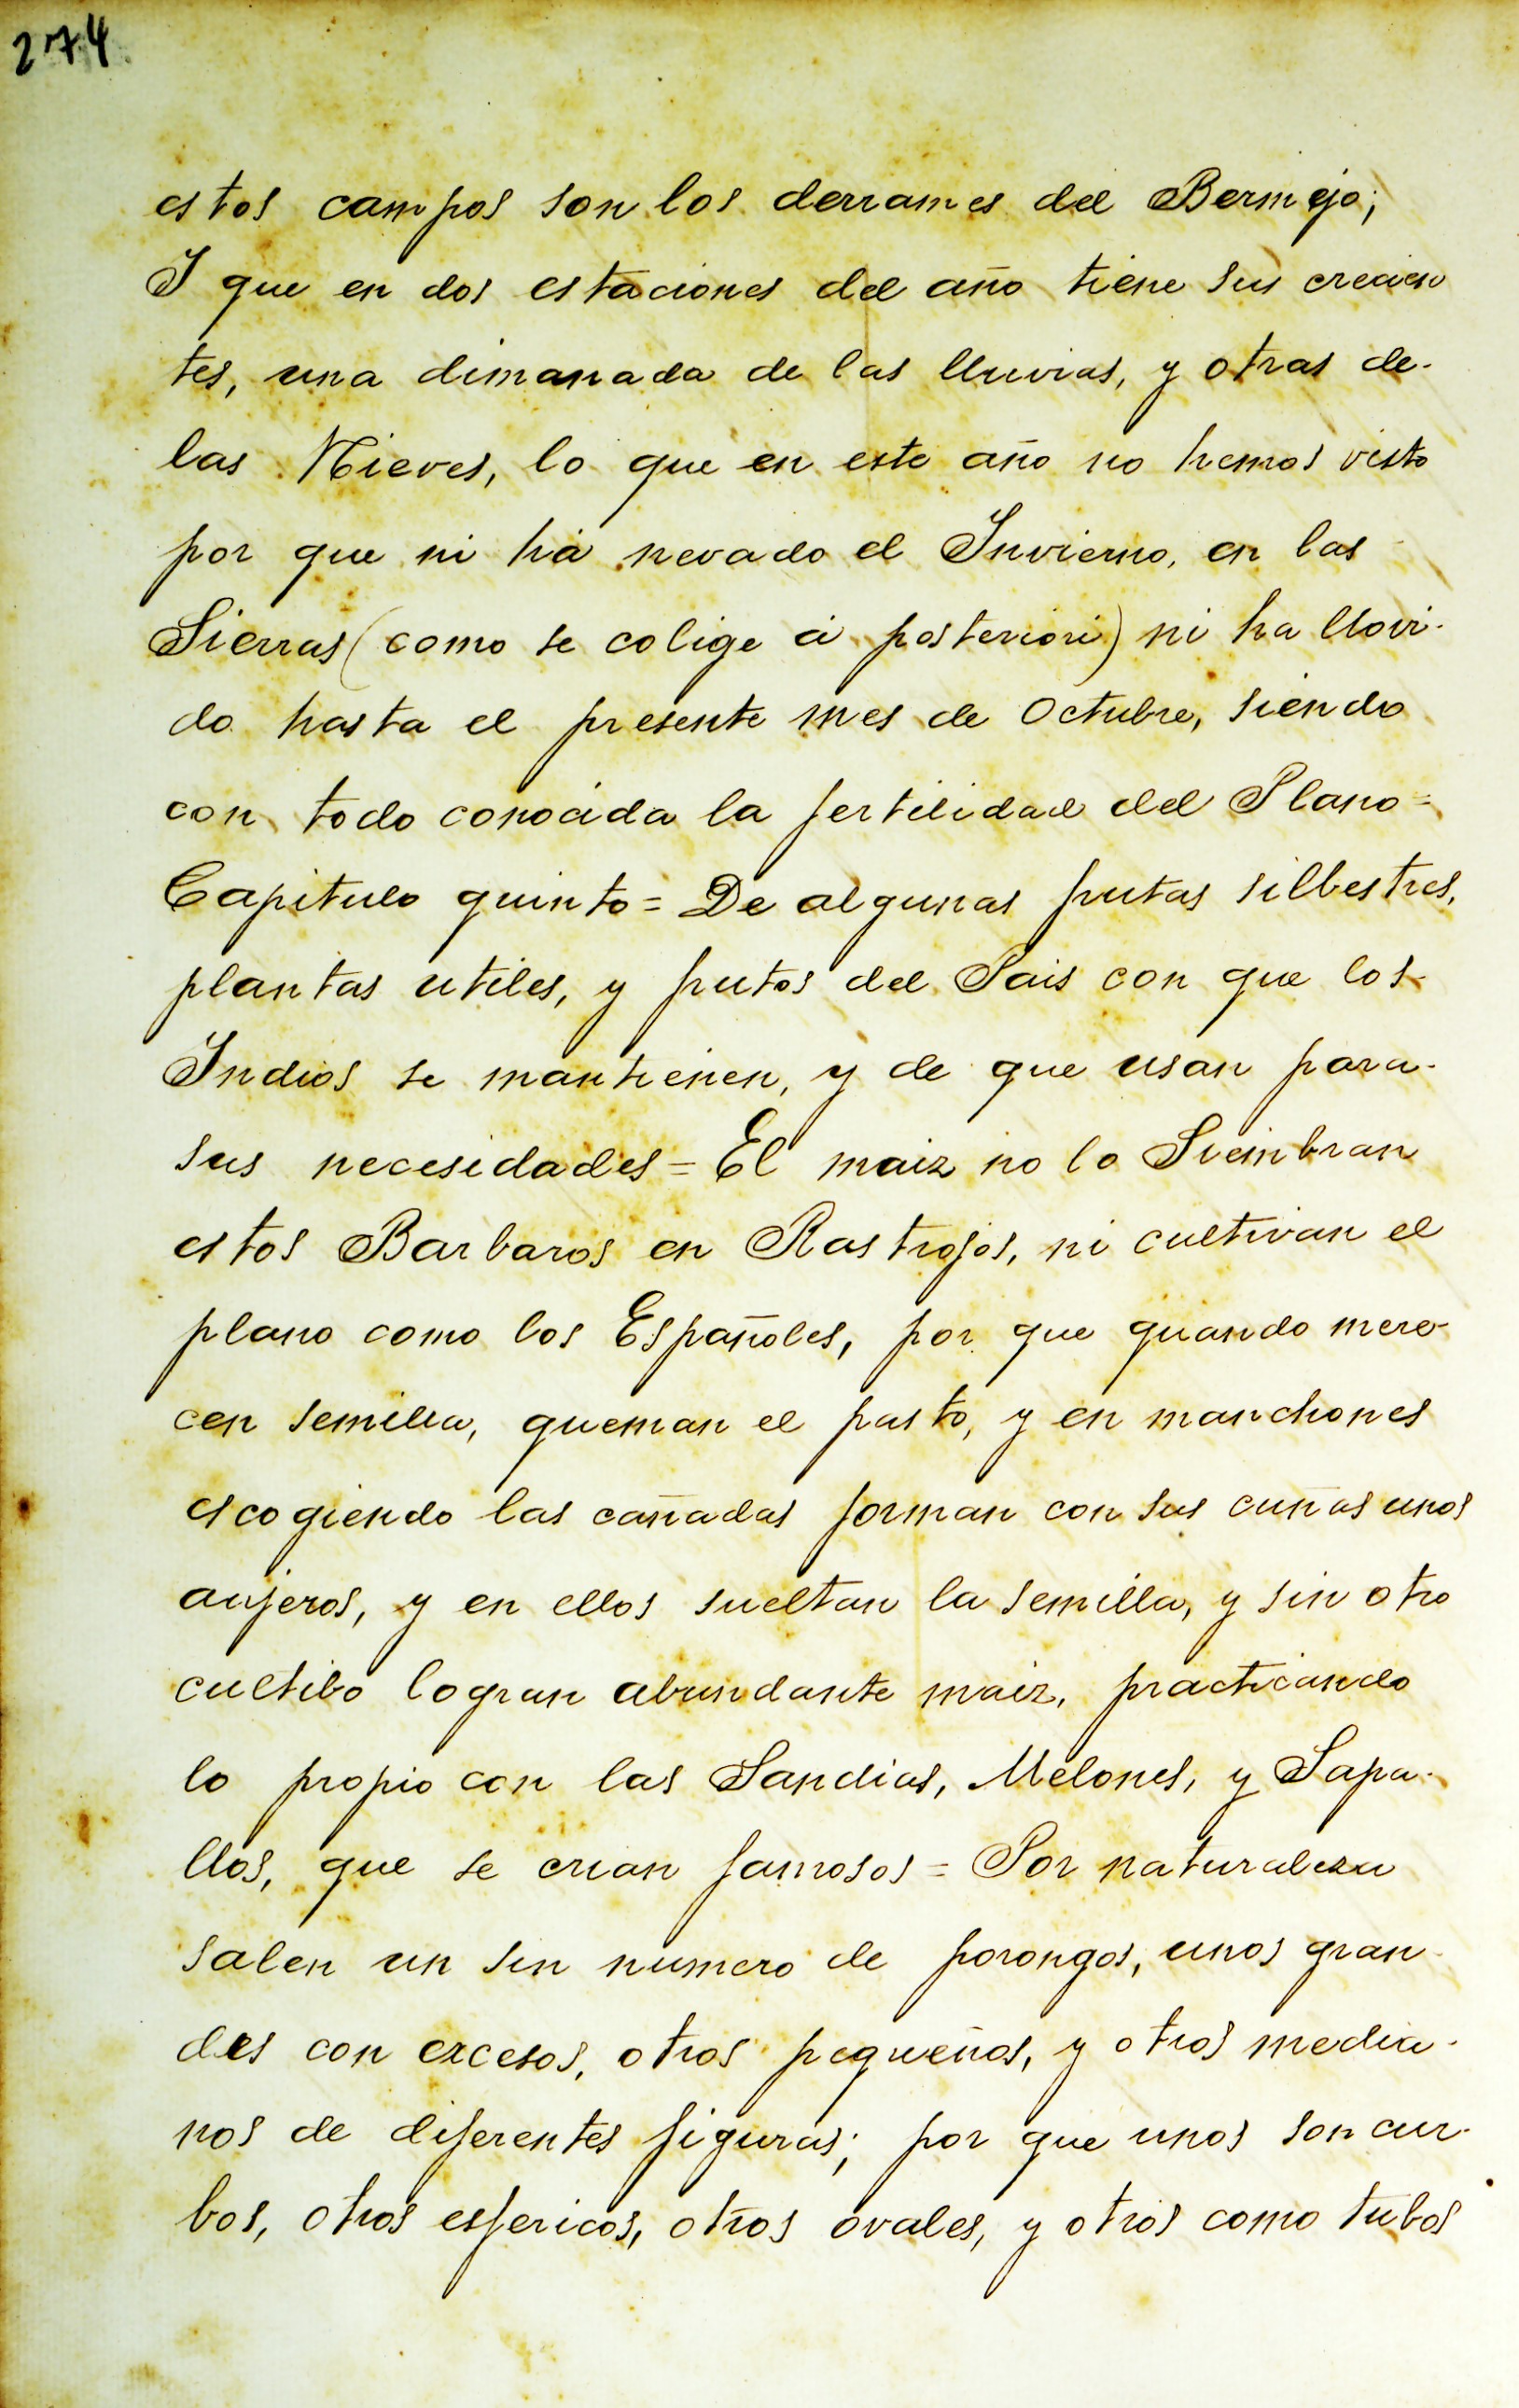 274
estos campos son los derrames del Bermejo;
I que en dos estaciones del año tiene sus crecien
tes, una dimanada de las lluvias, y otras de-
las Nieves, lo que en este año no hemos visto
por que ni há nevado el Invierno, en las
Sierras (como se colige á posteriori) ni ha llovi-
do hasta el presente mes de Octubre, siendo
con todo conocida la fertilidad del Plano=
Capitulo quinto= De algunas frutas silbestres,
plantas utiles, y frutos del Pais con que los
Indios se mantienen, y de que usan para-
sus necesidades= El maiz no lo Siembran
estos Barbaros en Rastrojos, ni cultivan el
plano como los Españoles, por que quando mere-
cen semilla, queman el pasto, y en manchones
escogiendo las cañadas forman con sus cuñas unos
aujeros, y en ellos sueltan la semilla, y sin otro
cultibo logran abundante maiz, practicando
lo propio con las Sandias, Melones, y Sapa-
llos, que se crian famosos= Por naturaleza
salen un sin numero de porongos, unos gran-
des con excesos, otros pequeños, y otros media-
nos de diferentes figuras; por que unos son cur-
bos, otros esfericos, otros ovales, y otros como tubos